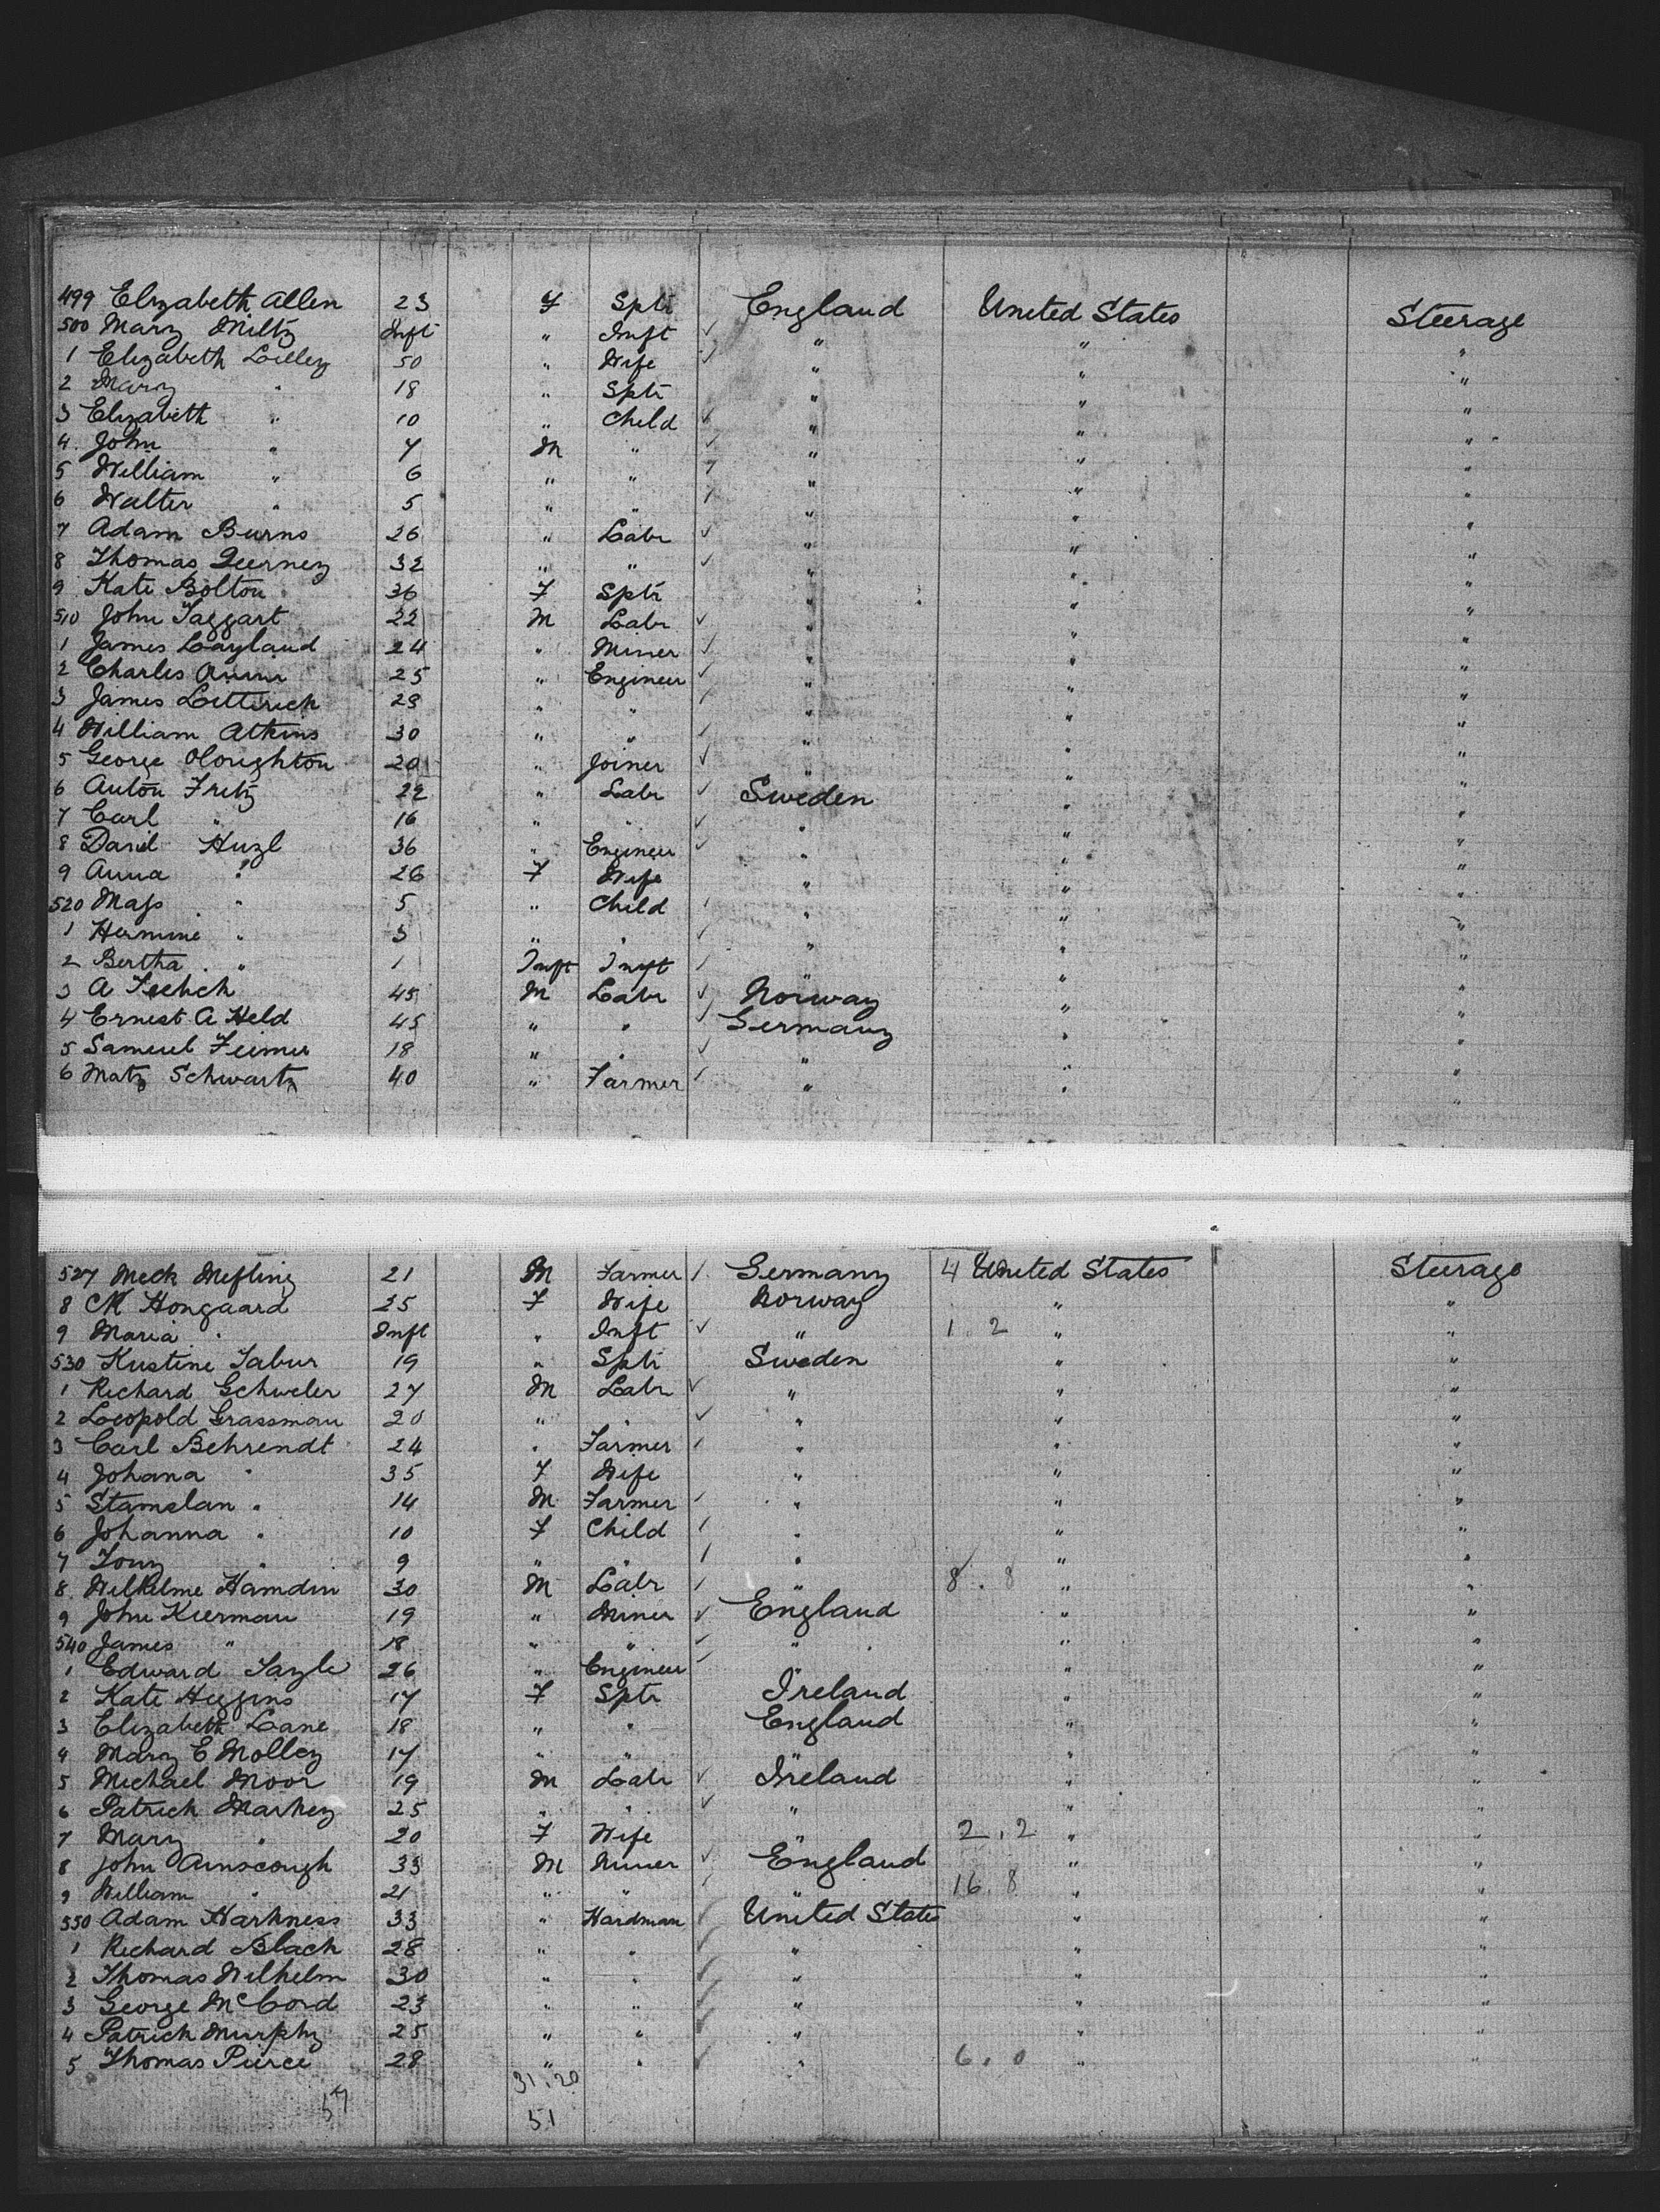 499 Elizabeth Allen 23 F Sptr England United States Steerage
500 Mary Miltz Inft " Inft " " "
1 Elizabeth Lilley 50 " Wife " " "
2 Mary " 18 " Sptr " " "
3 Elizabeth " 10 " Child " " "
4 John " 7 M " " " "
5 William " 6 " " " " "
6 Walter " 5 " " " " "
7 Adam Burns 26 " Labr " " "
8 Thomas 32 " " " " "
9 Kate Bolton 36 F Sptr " " "
510 John Taggart 22 M Labr " " "
1 James Layland 24 " Miner " " "
2 Charles 25 " Engineer " " "
3 James 28 " " " " "
4 William Atkins 30 " " " " "
5 George Oloughton 20 " Joiner " " "
6 Anton Fritz 22 " Labr Sweden " "
7 Carl " 16 " " " " "
8 David Huzl 36 " Engineer " " "
9 Anna " 26 F Wife " " "
520 " 5 " Child " " "
1 Hermine " 3 " " " " "
2 Bertha " 1 Inft Inft " " "
3 A 45 M Labr Norway " "
4 Ernest A Held 45 " " Germany " "
5 Samuel 18 " " " " "
6 Matz Schwartz 40 " Farmer " " "
527 Meck Mefting 21 M Farmer Germany 4 United States Steerage
8 CM Hongaard 25 F Wife Norway " "
9 Maria " Inft " Inft " 1. 2 " "
530 Kustine Tabur 19 " Sptr Sweden " "
1 Richard Schweler 27 M Labr " " "
2 Leopold Grassman 20 " " " " "
3 Carl Behrendt 24 " Farmer " " "
4 Johana " 35 F Wife " " "
5 Stamslan " 14 M Farmer " " "
6 Johanna " 10 F Child " " "
7 Tony " 9 " " " " "
8 Wilhelme Hamdin 30 M Labr " 8. 8 " "
9 John Kiernan 19 " Miner England " "
540 James " 18 " " " " "
1 Edward 26 " Engineer " " "
2 Kate Higgins 17 F Sptr Ireland " "
3 Elizabeth Lane 18 " " England " "
4 Mary E Molley 17 " " " " "
5 Michael Moor 19 M Labr Ireland " "
6 Patrick Markey 25 " " " " "
7 Mary " 20 F Wife " 2. 2 " "
8 John Ainscough 33 M Miner England " "
9 William " 21 " " " 16. 8 " "
550 Adam Harkness 33 " Hardman United States " "
1 Richard Black 28 " " " " "
2 Thomas Wilhelm 30 " " " " "
3 George McCord 23 " " " " "
4 Patrick Murphy 25 " " " " "
5 Thomas Pierce 28 " " " 6. 0 " "
31. 20
57 51